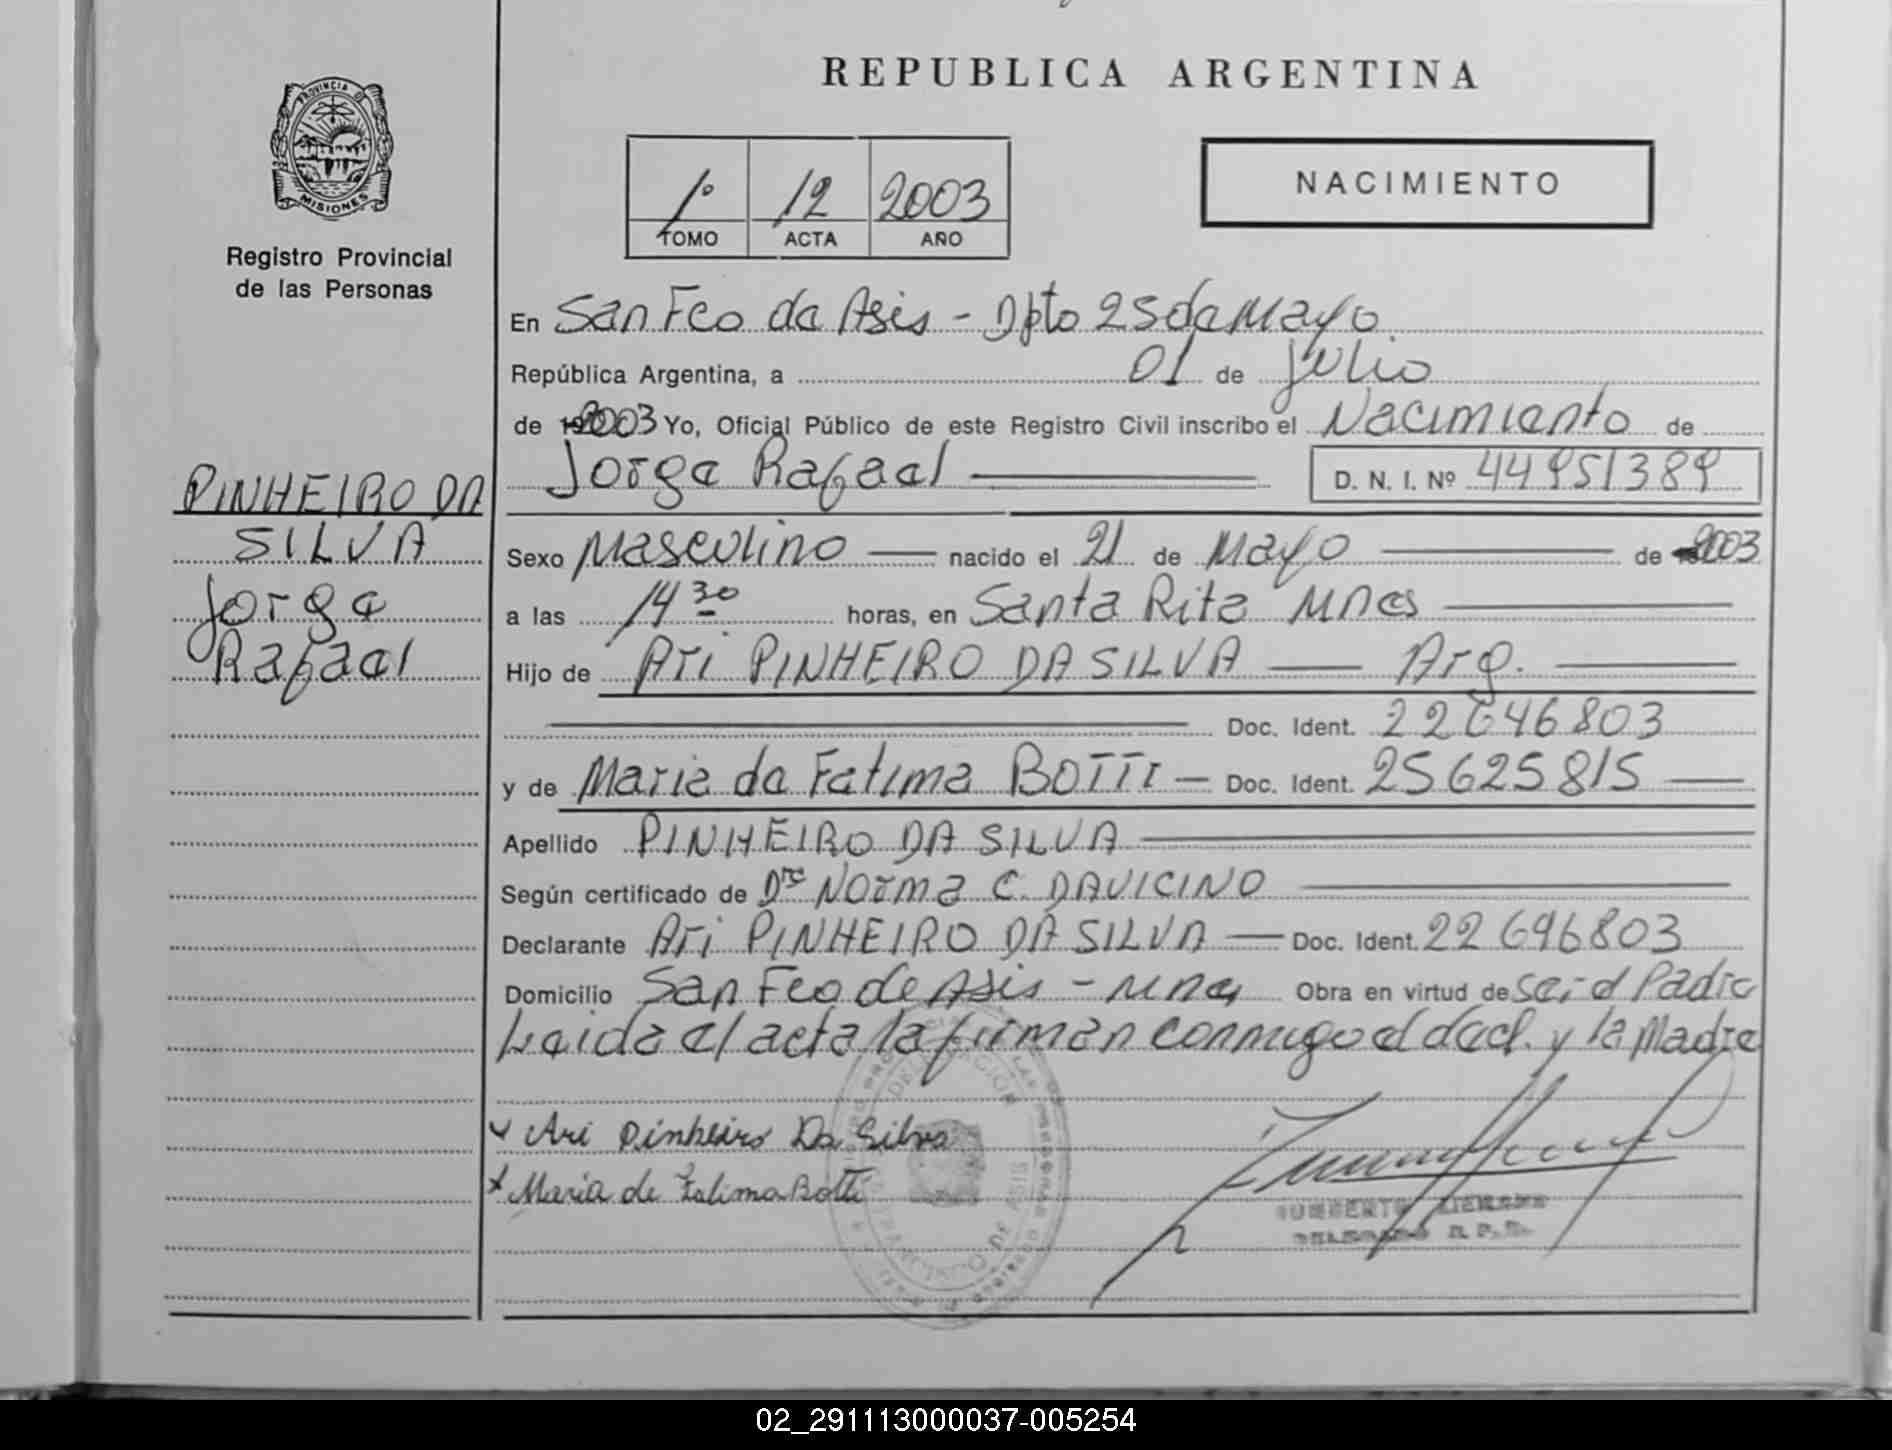 REPUBLICA ARGENTINA
PROVINCIA DE
MISIONES
Registro Provincial
de las Personas
1º 12 2003
TOMO ACTA AÑO
NACIMIENTO
En San Fco de Asis - Dpto 25 de Mayo
República Argentina, a 01 de Julio
de 2003 Yo, Oficial Público de este Registro Civil inscribo el Nacimiento de
Jorge Rafael D. N. I. Nº 44951389
PINHEIRO DA
SILVA
Jorge
Rafael
Sexo Masculino nacido el 21 de Mayo de 2003
a las 14 30 horas, en Santa Rita Mnes
Hijo de Ari PINHEIRO DA SILVA Arg.
Doc. Ident. 22646803
y de Maria de Fatima BOTTI Doc. Ident. 25625815
Apellido PINHEIRO DA SILVA
Según certificado de Dra Norma C. DAVICINO
Declarante Ari PINHEIRO DA SILVA Doc. Ident. 22646803
Domicilio San Fco de Asis - Mnes Obra en virtud de ser el Padre
Leida el acta la firman conmigo el decl. y la Madre
Ari Pinheiro Da Silva
x Maria de Fatima Botti
02_291113000037-005254